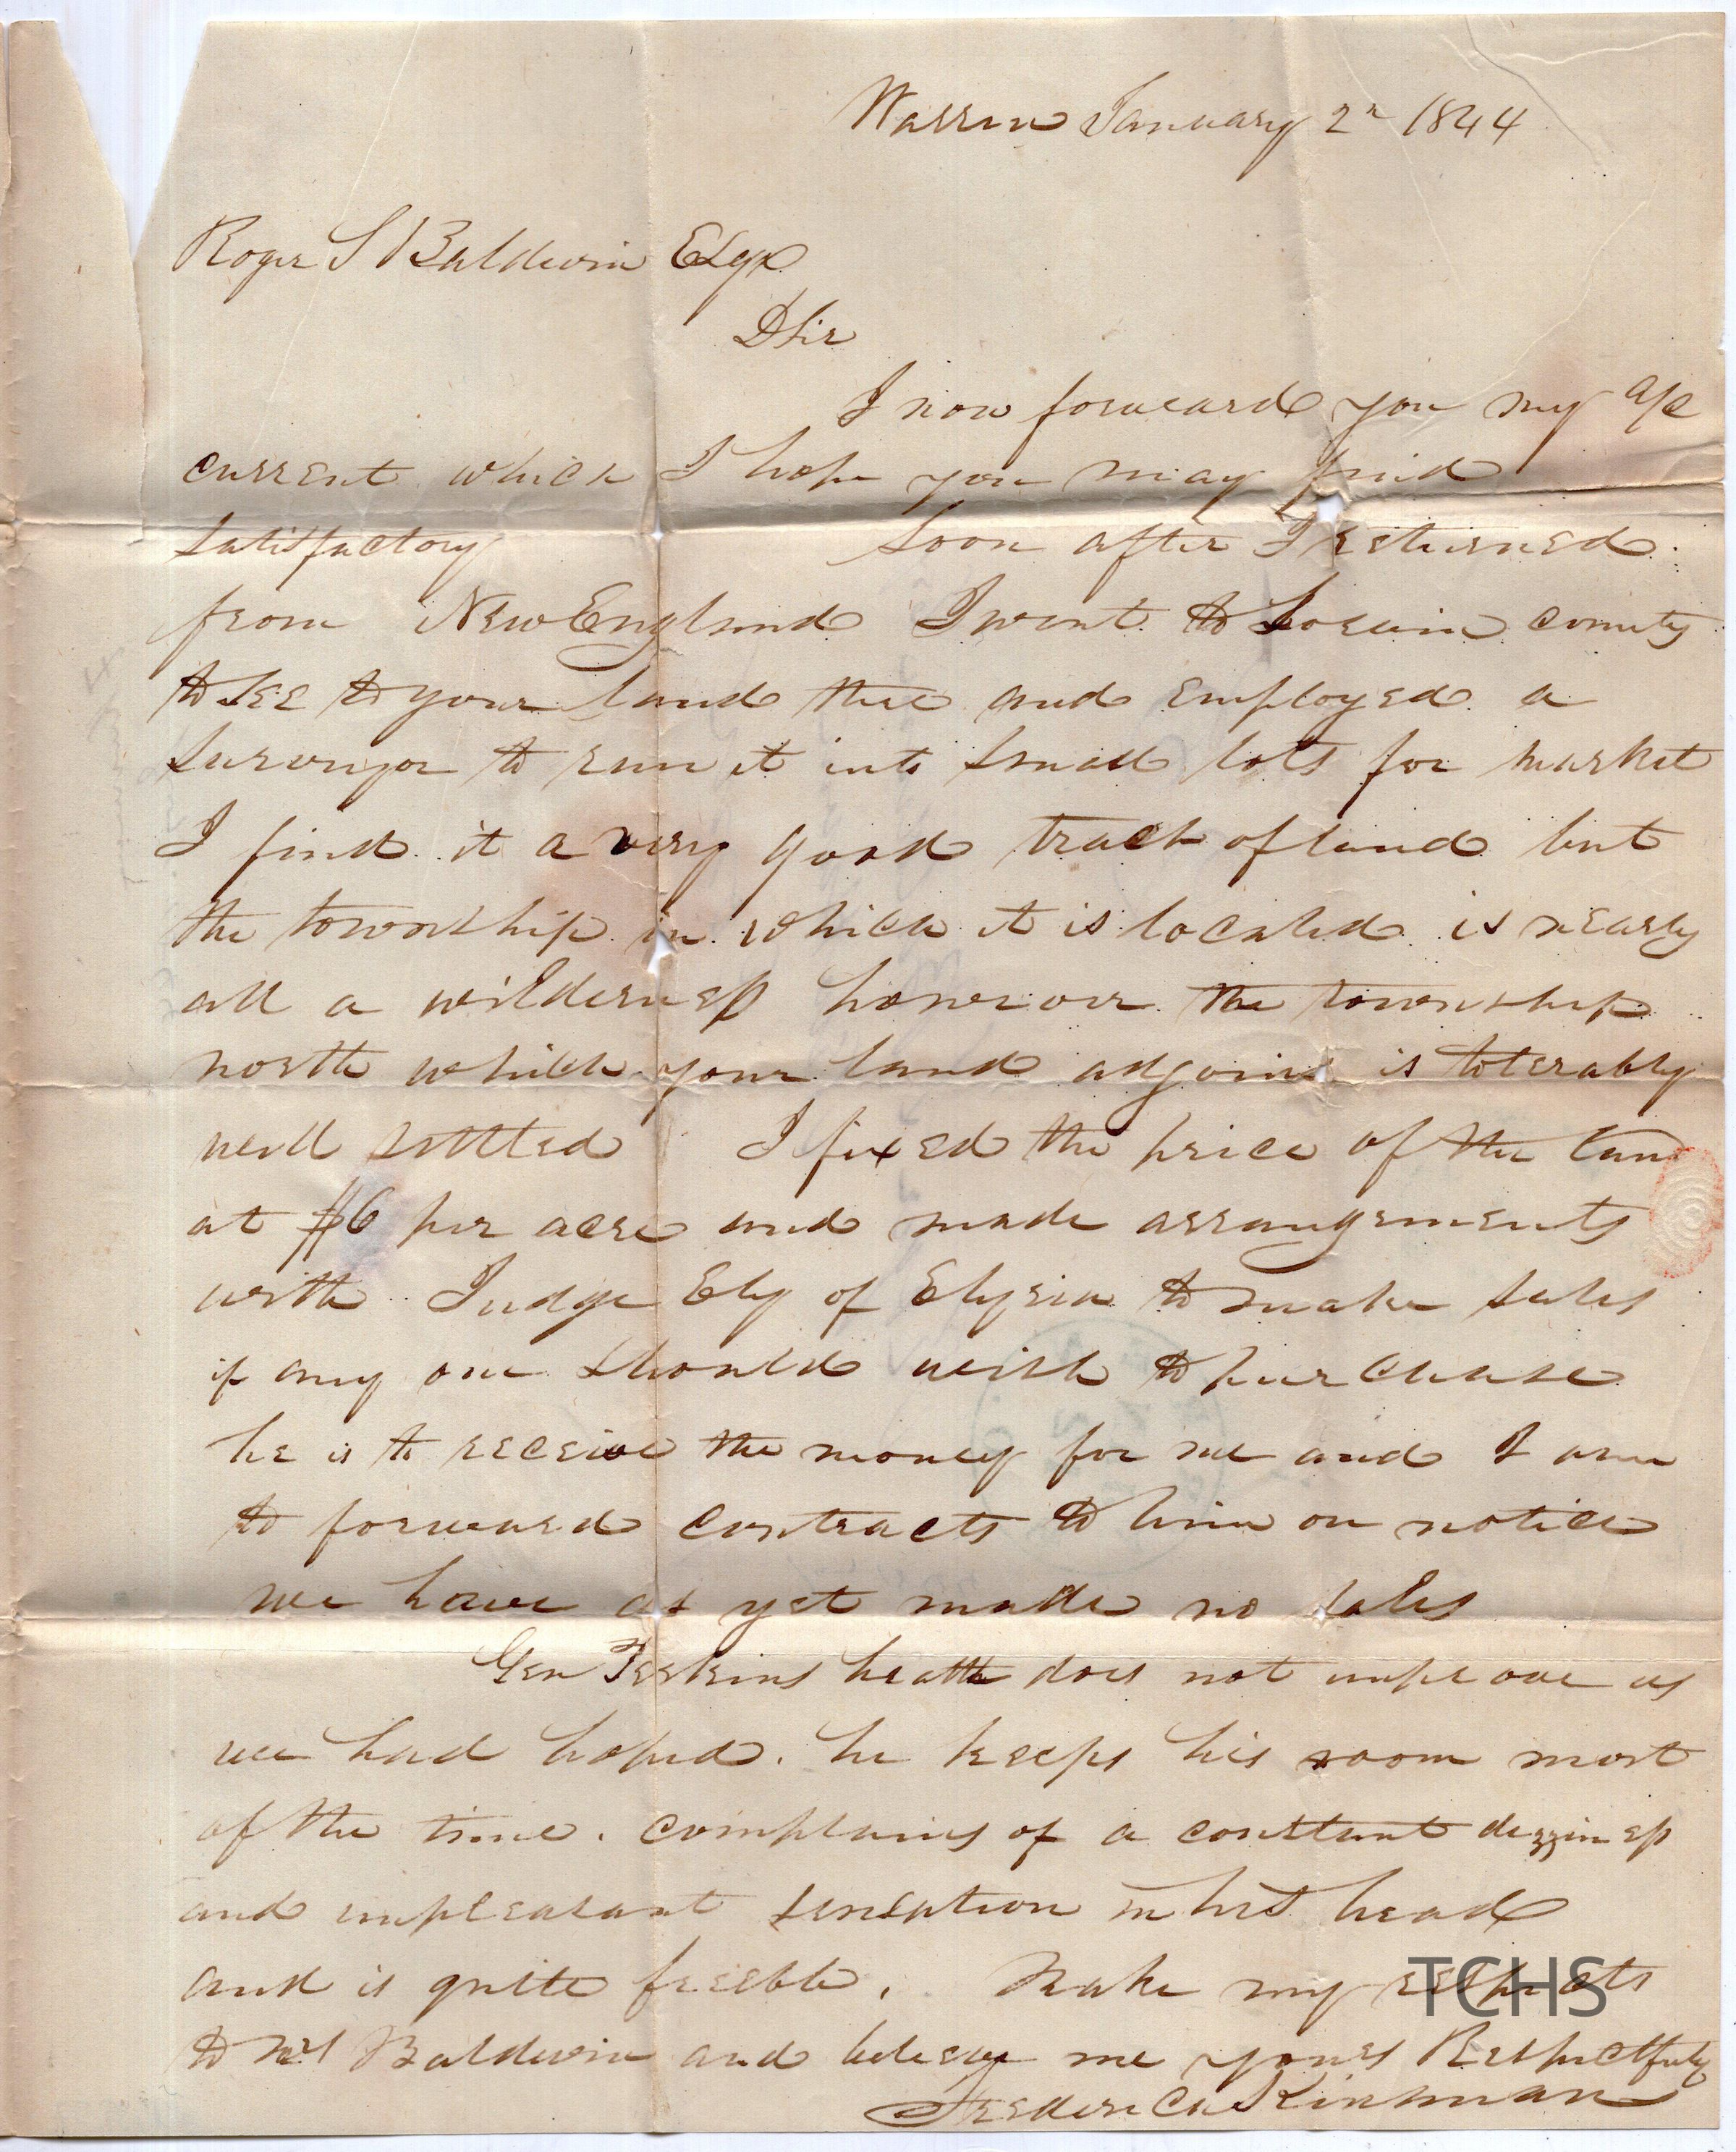 Warren January 2n 1844
Roger S Baldwin Esqr
D Sir
I now forward you my a/c
current which I hope you may find
satisfactory Soon after I returned
from New England I went to Lorain county
to see to your land there and employed a
surveyor to run it into small lots for market
I find it a very good tract of land but
the township in which it is located is nearly
all a wilderness however the township
north which your land adjoins is tolerably
well settled I fixed the price of the land
at $6 per acre and made arrangements
with Judge Ely of Elyria to make sales
if any one should wish to purchase
he is to receive the money for me and I am
to forward contracts to him on notice
we have as yet made no sales
Gen Perkins health does not improve as
we had hoped. he keeps his room most
of the time. complains of a constant dizziness
and unpleasant sensation in his head
and is quite feeble. Make my respects
to Mrs Baldwin and believe me yours Respectfully
Frederick Kinsman
TCHS